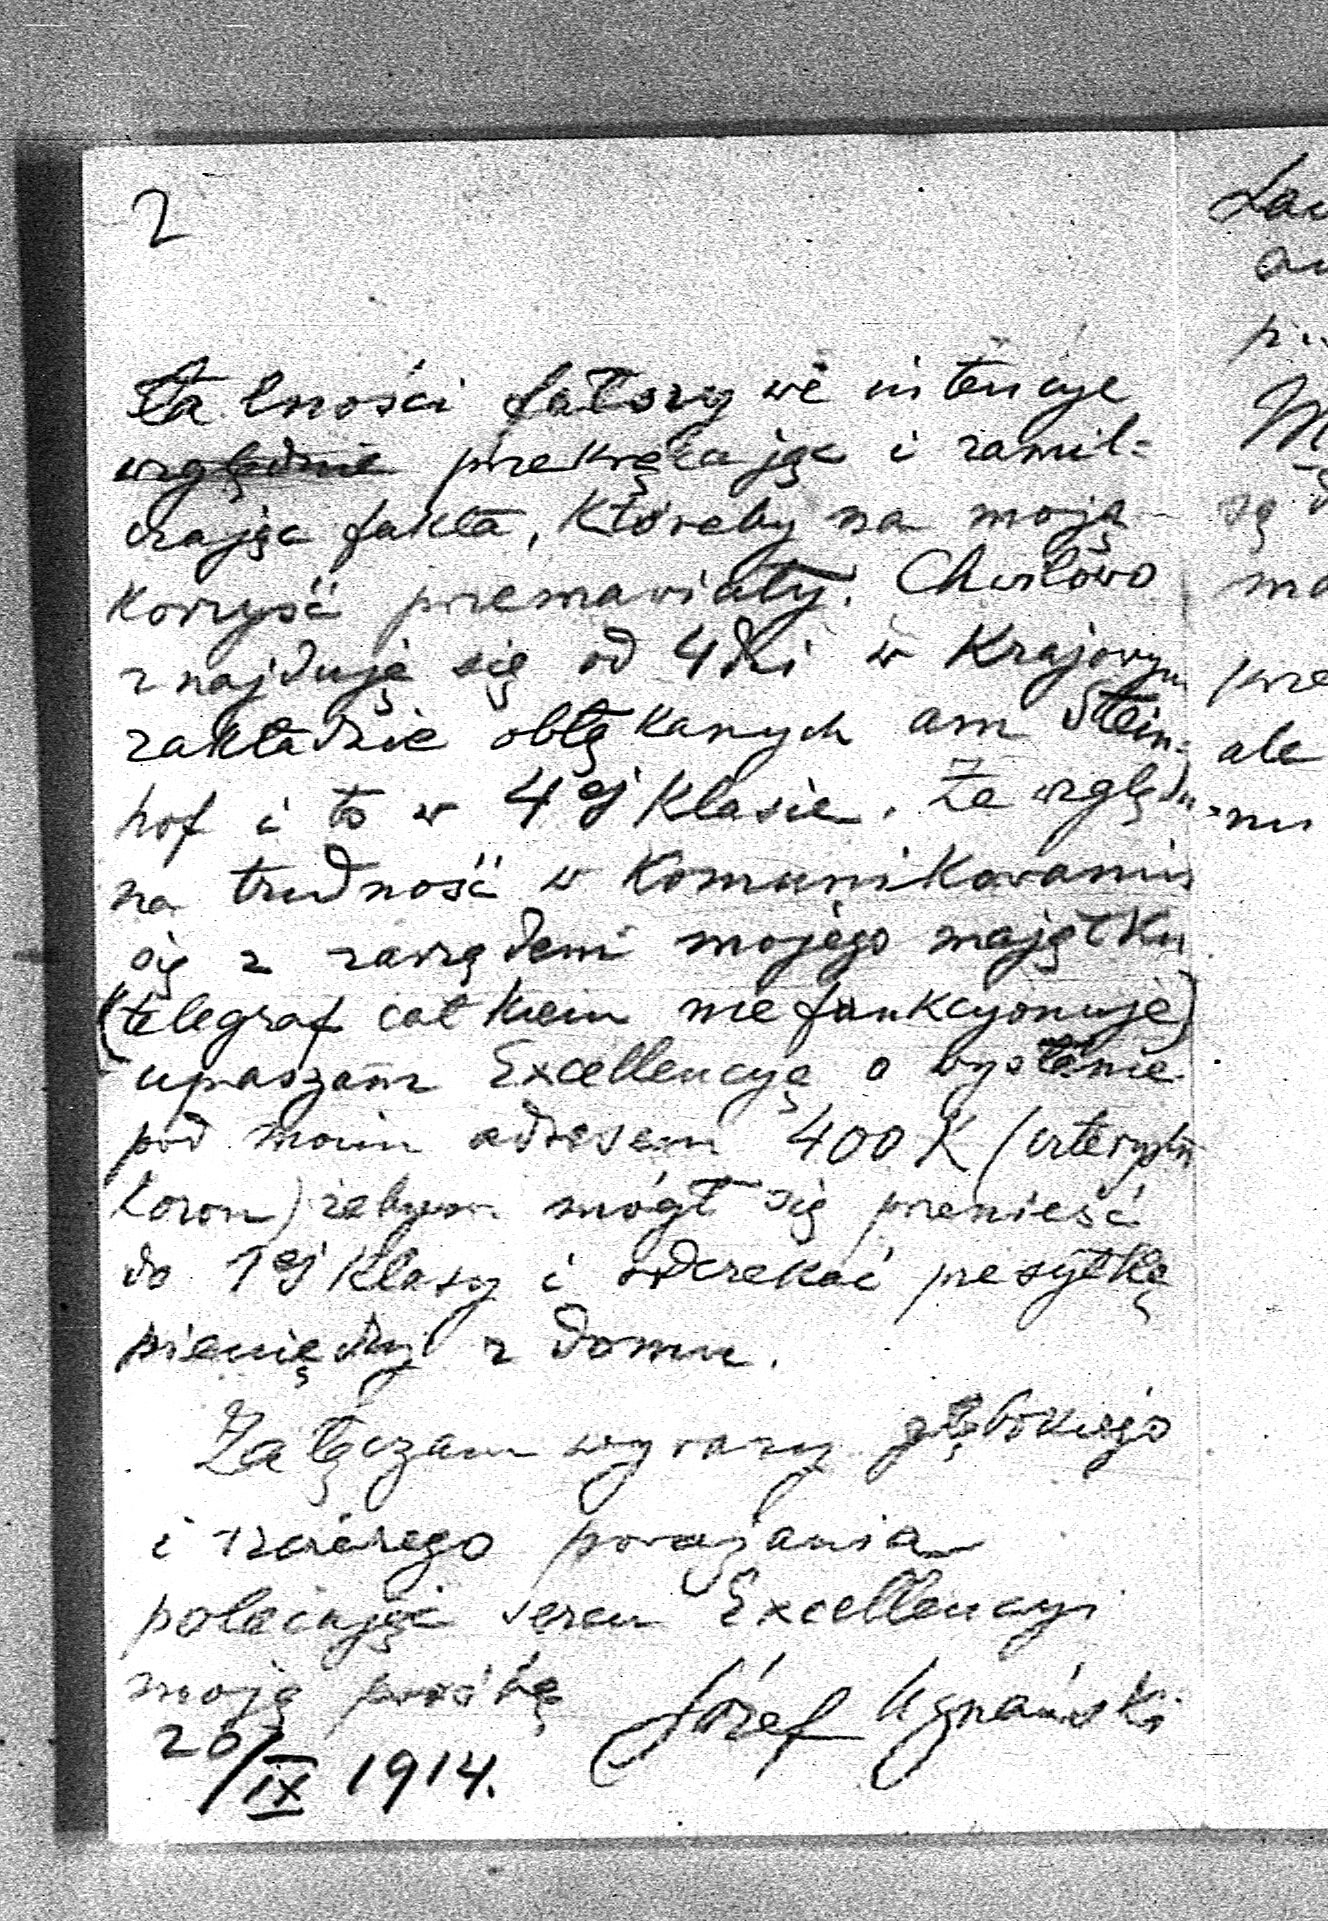 2
talności fałszywe intencye
względnie przekręcając i zamil=
czając fakta, któreby na moją
korzyść przemawiały. Chwilowo
znajduję się od 4 dni w Krajowym
zakładzie obłąkanych am Stein=
hof i to w 4ej klasie. Ze względu
na trudność w komunikowaniu
się z zarządem mojego majątku
(telegraf całkiem nie funkcyonuje)
upraszam Excellencyę o wysłanie
pod moim adresem 400 K (czterysta
koron) żebym mógł się przenieść
do 1ej klasy i odczekać przesyłkę
pieniędzy z domu.
Załączam wyrazy głębokiego
i szczerego poważania
polecając sercu Excellencyi
moją prośbę
Józef
20/IX 1914.
są
ale